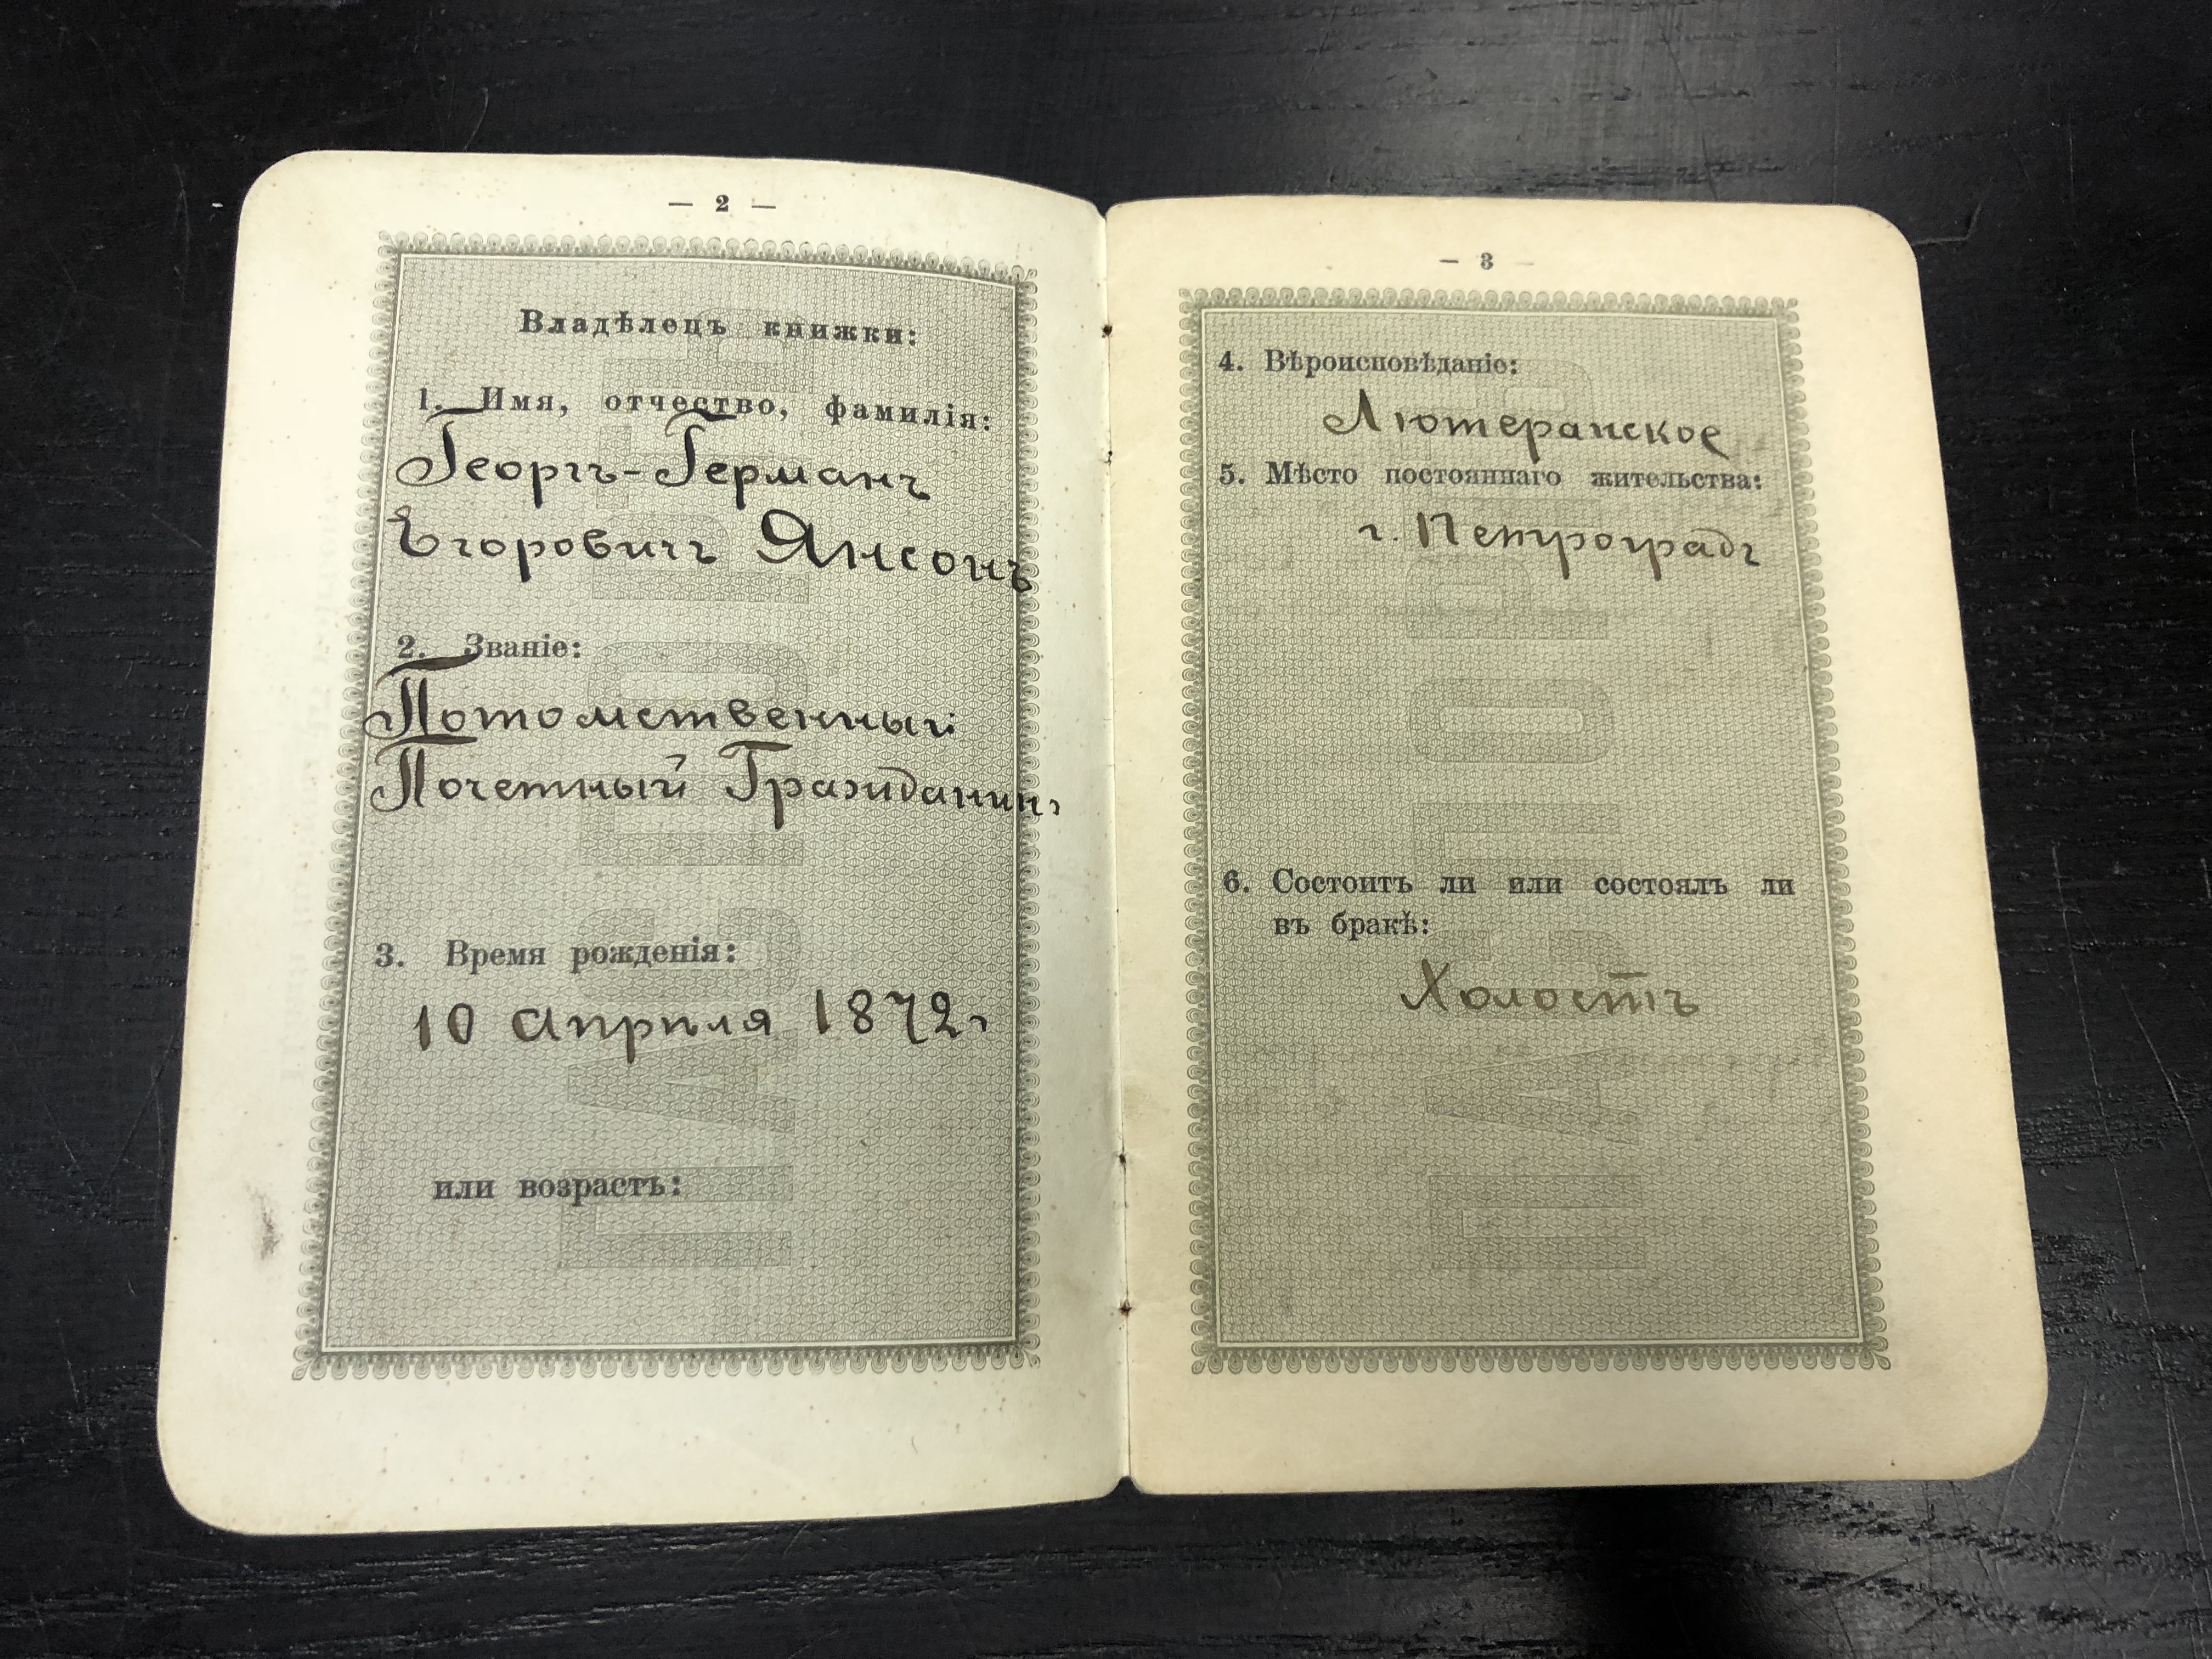 — 2 —
Владѣлецъ книжки:
1. Имя, отчество, фамилія:
Георгъ-Германъ
Егоровичъ Янсонъ
2. Званіе:
Потомственный
Почетный Гражданинъ
3. Время рожденія:
10 апрѣля 1872 г
или возрастъ:
— 3 —
4. Вѣроисповѣданіе:
Лютеранское
5. Мѣсто постояннаго жительства:
г. Петроградъ
6. Состоитъ ли или состоялъ ли
въ бракѣ:
Холостъ